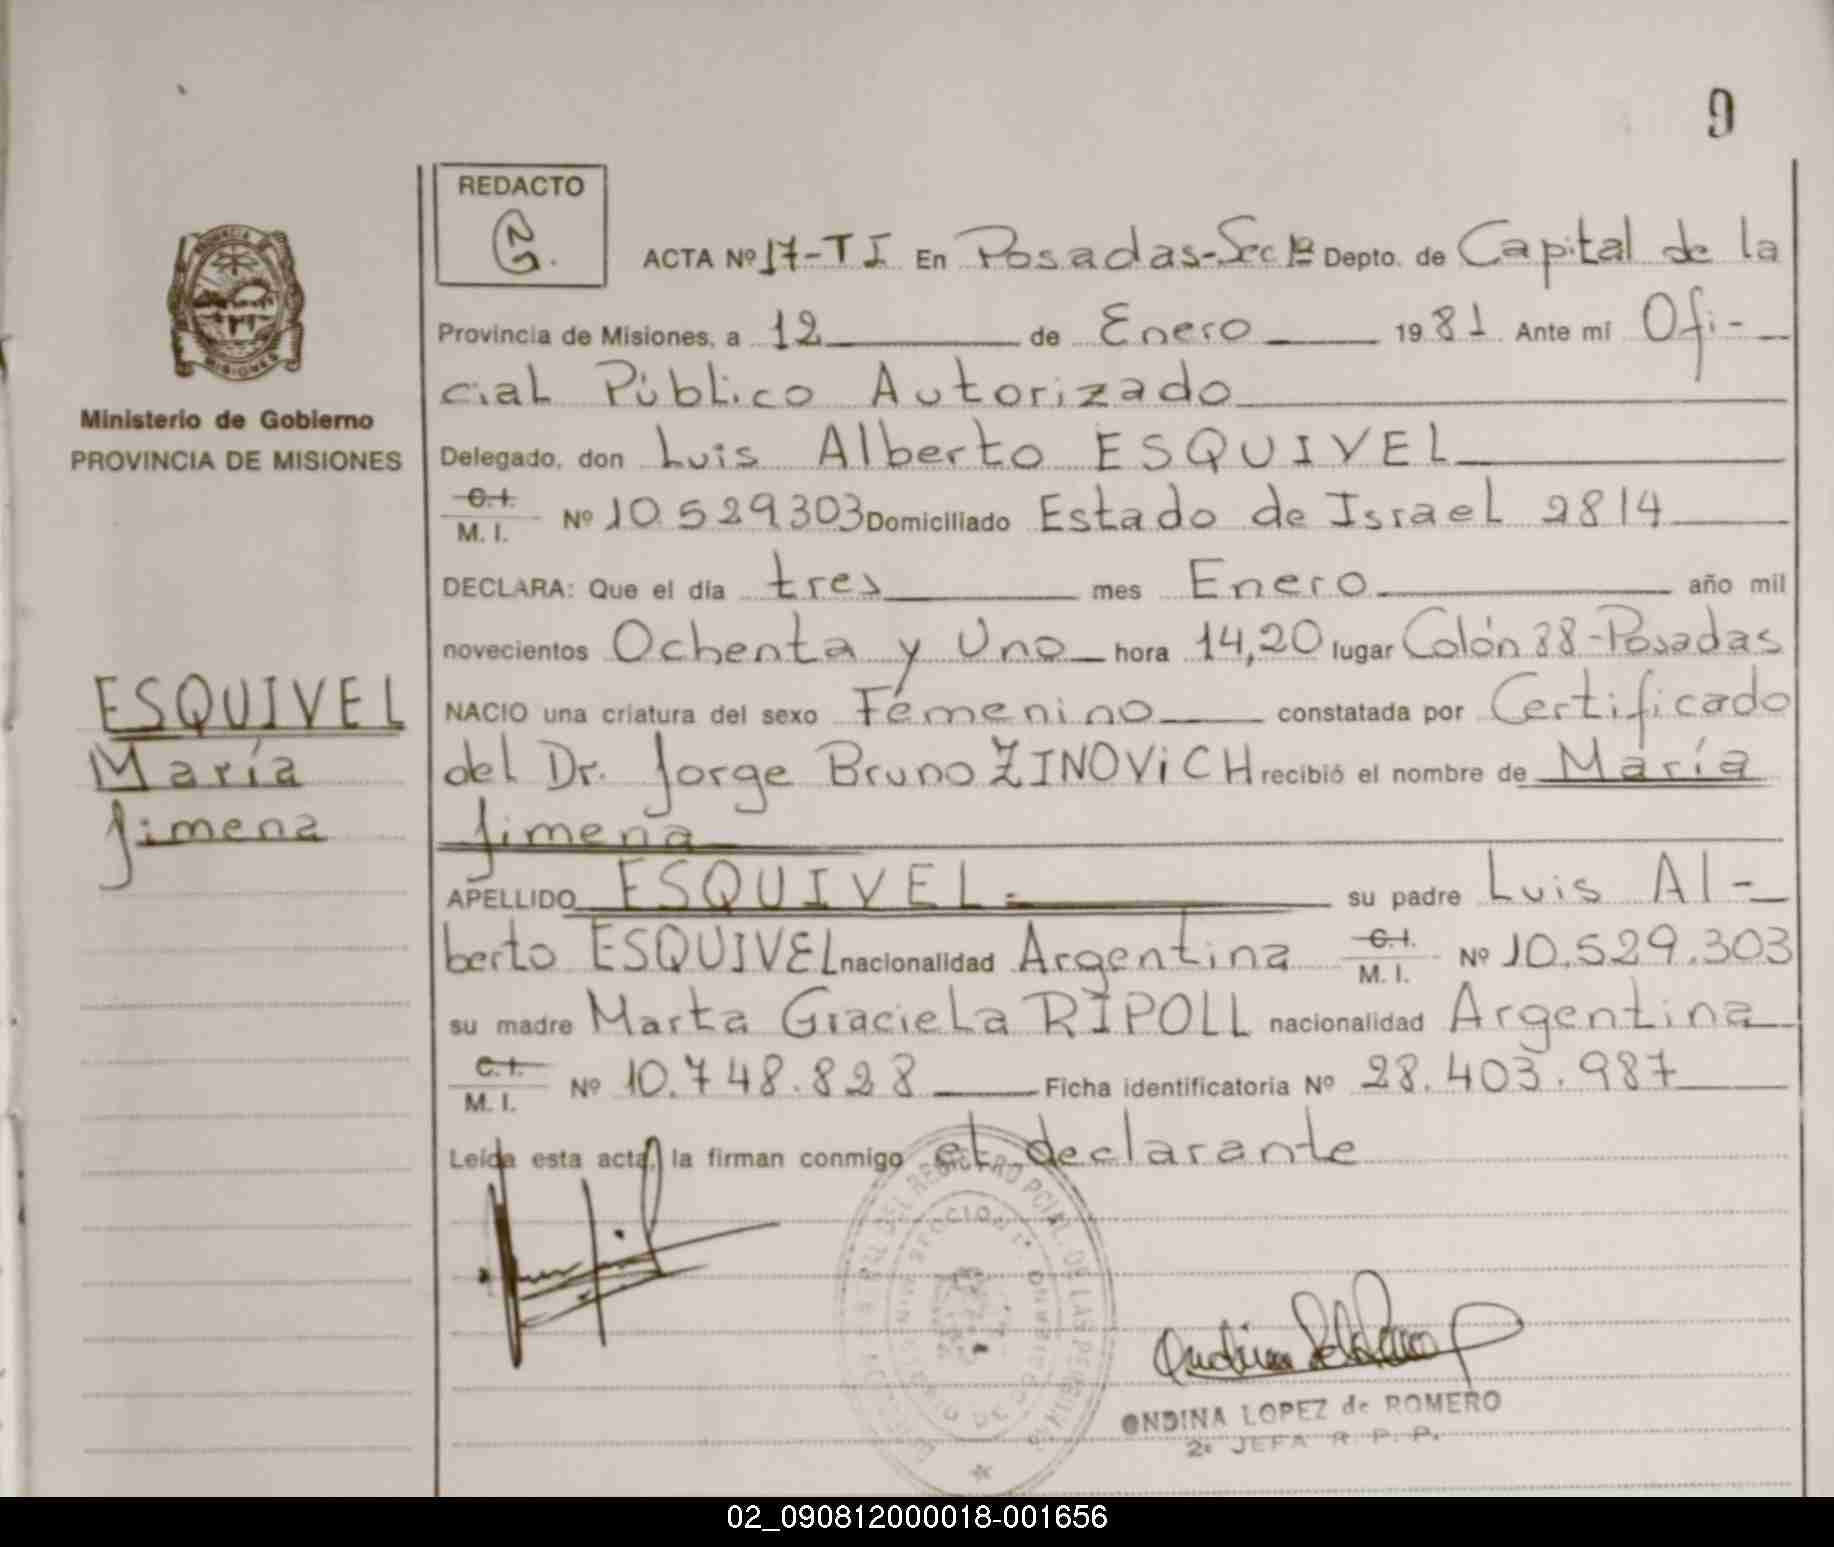 9
REDACTO
PROVINCIA DE
MISIONES
Ministerio de Gobierno
PROVINCIA DE MISIONES
ESQUIVEL
María
Jimena
ACTA Nº 17-TI En Posadas-Sec 1ª Depto. de Capital de la
Provincia de Misiones, a 12 de Enero 1981 Ante mí Ofi-
cial Público Autorizado
Delegado, don Luis Alberto ESQUIVEL
C.I.
M. I. Nº 10.529.303 Domiciliado Estado de Israel 2814
DECLARA: Que el día tres mes Enero año mil
novecientos Ochenta y Uno hora 14,20 lugar Colón 88-Posadas
NACIO una criatura del sexo Femenino constatada por Certificado
del Dr. Jorge Bruno ZINOVICH recibió el nombre de María
Jimena
APELLIDO ESQUIVEL.= su padre Luis Al-
berto ESQUIVEL nacionalidad Argentina C.I. M. I. Nº 10.529.303
su madre Marta Graciela RIPOLL nacionalidad Argentina
C.I.
M. I. Nº 10.748.828 Ficha identificatoria Nº 28.403.987
Leída esta acta, la firman conmigo el declarante
DEL REGISTRO PCIAL. DE LAS PERSONAS
SECCION 1ª
ONDINA LOPEZ de ROMERO
2ª JEFA R. P. P.
02_090812000018-001656